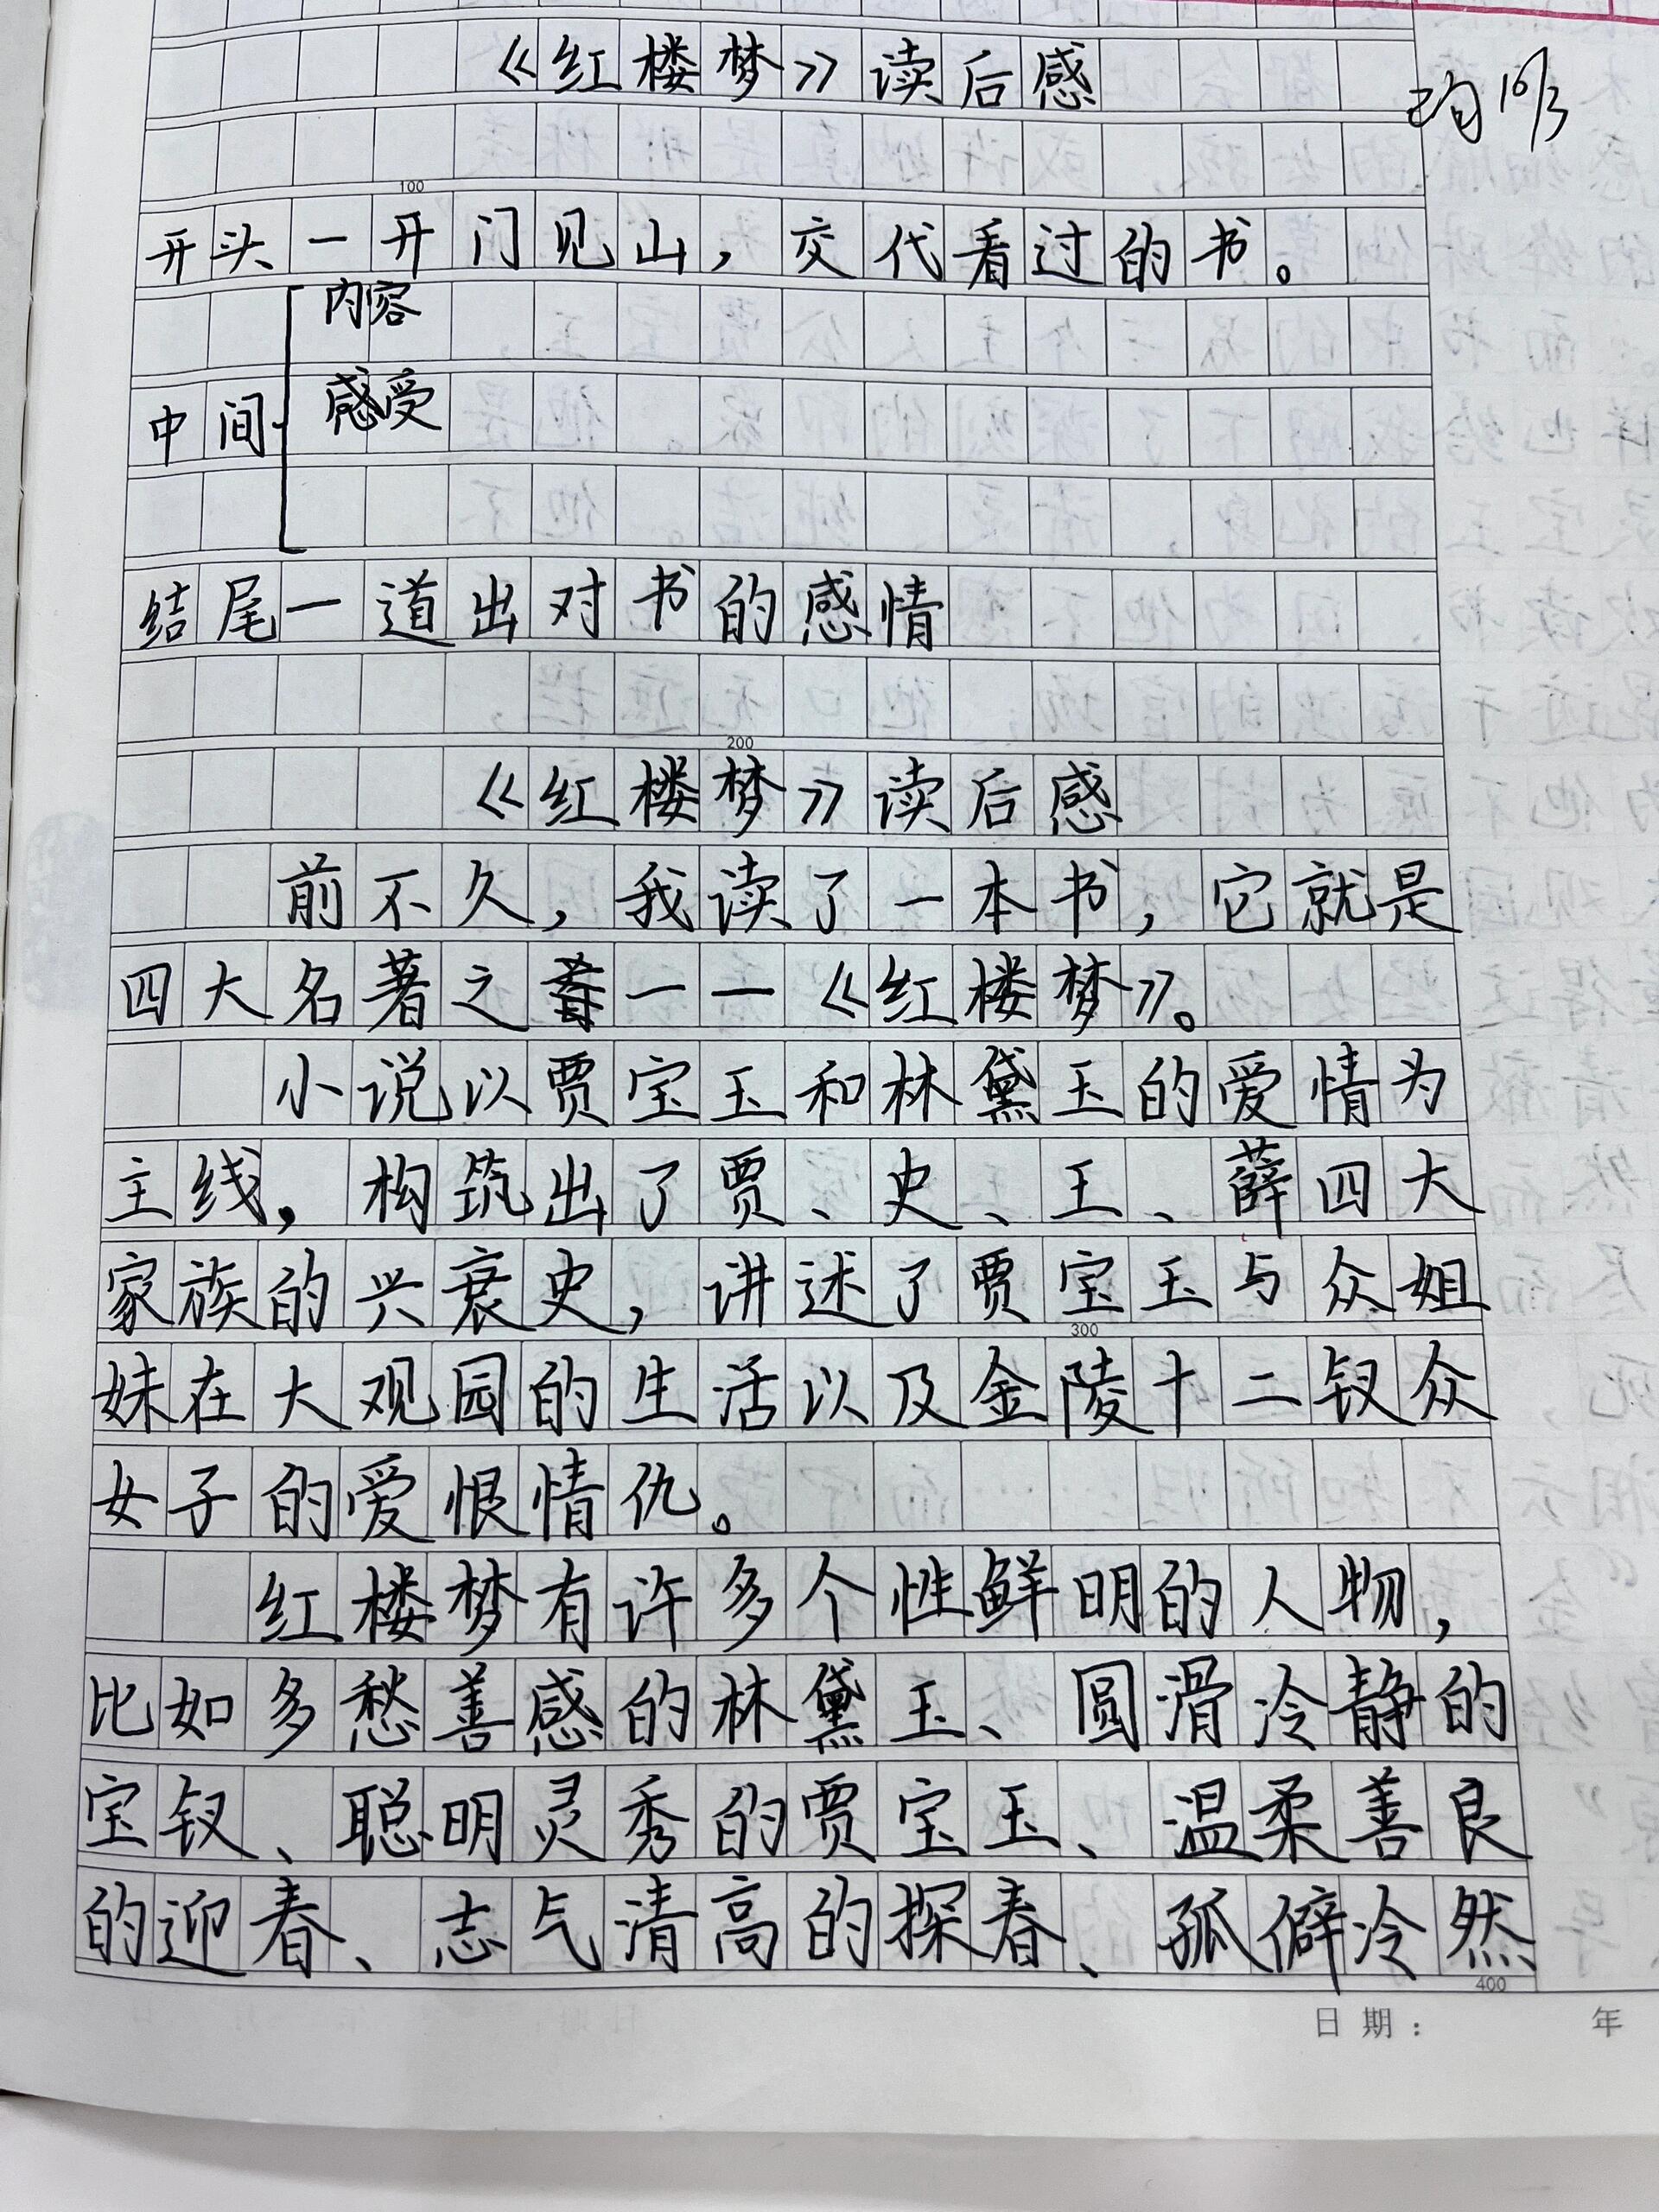 《红楼梦》读后感
10/3
100
开头一开门见山，交代看过的书。
内容
感受
中间
结尾一道出对书的感情
200
《红楼梦》读后感
前不久，我读了一本书，它就是
四大名著之首——《红楼梦》。
小说以贾宝玉和林黛玉的爱情为
主线，构筑出了贾、史、王、薛四大
家族的兴衰史，讲述了贾宝玉与众姐
300
妹在大观园的生活以及金陵十二钗众
女子的爱恨情仇。
红楼梦有许多个性鲜明的人物，
比如多愁善感的林黛玉、圆滑冷静的
宝钗、聪明灵秀的贾宝玉、温柔善良
的迎春、志气清高的探春、孤僻冷然
400
日期： 年